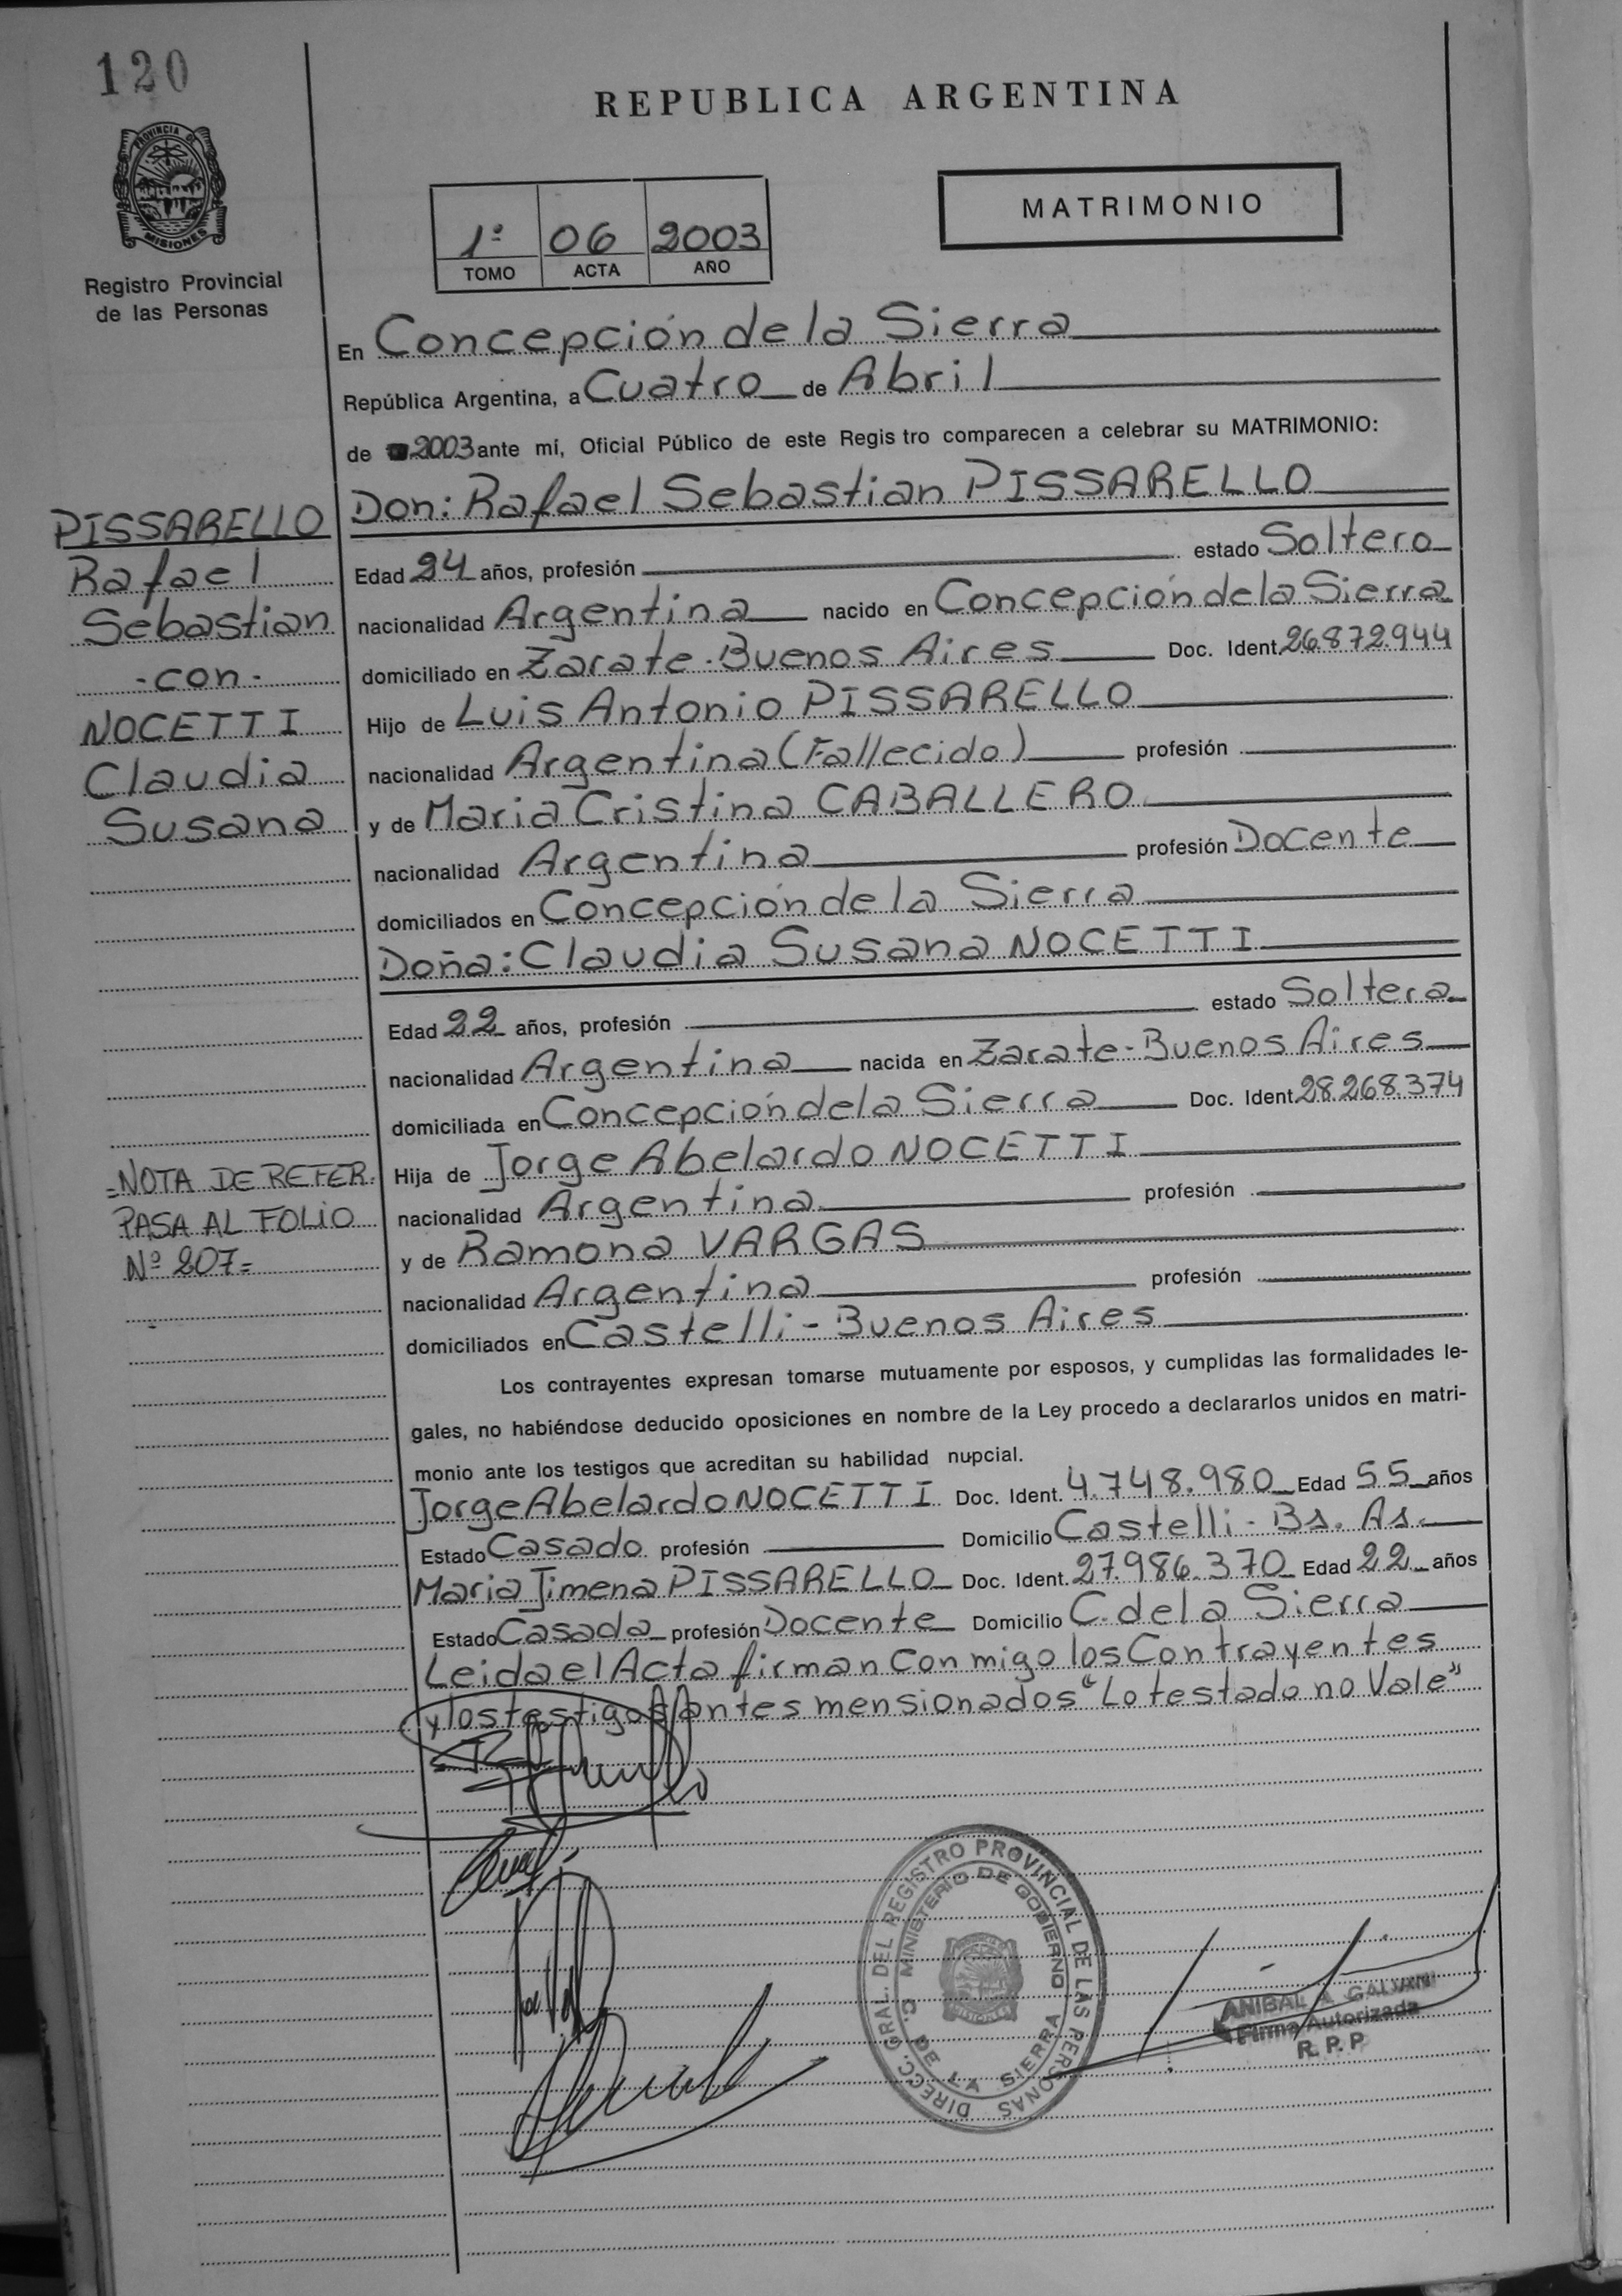 120
REPUBLICA ARGENTINA
PROVINCIA DE
MISIONES
Registro Provincial
de las Personas
1º 06 2003
TOMO ACTA AÑO
MATRIMONIO
En Concepción de la Sierra
República Argentina, a Cuatro de Abril
de 2003 ante mí, Oficial Público de este Regis tro comparecen a celebrar su MATRIMONIO:
Don: Rafael Sebastian PISSARELLO
Edad 24 años, profesión estado Soltero
nacionalidad Argentina nacido en Concepción de la Sierra
domiciliado en Zarate - Buenos Aires Doc. Ident. 26.872.944
Hijo de Luis Antonio PISSARELLO
nacionalidad Argentina (Fallecido) profesión
y de Maria Cristina CABALLERO
nacionalidad Argentina profesión Docente
domiciliados en Concepción de la Sierra
Doña: Claudia Susana NOCETTI
Edad 22 años, profesión estado Soltera
nacionalidad Argentina nacida en Zarate - Buenos Aires
domiciliada en Concepción de la Sierra Doc. Ident. 28.268.374
Hija de Jorge Abelardo NOCETTI
nacionalidad Argentina profesión
y de Ramona VARGAS
nacionalidad Argentina profesión
domiciliados en Castelli - Buenos Aires
Los contrayentes expresan tomarse mutuamente por esposos, y cumplidas las formalidades le-
gales, no habiéndose deducido oposiciones en nombre de la Ley procedo a declararlos unidos en matri-
monio ante los testigos que acreditan su habilidad nupcial.
Jorge Abelardo NOCETTI Doc. Ident. 4.748.980 Edad 55 años
Estado Casado profesión Domicilio Castelli - Bs. As.
Maria Jimena PISSARELLO Doc. Ident. 27.986.370 Edad 22 años
Estado Casada profesión Docente Domicilio C. de la Sierra
Leida el Acta firman Con migo los Contrayentes
y los testigos Antes mensionados "Lo testado no Vale"
PISSARELLO
Rafael
Sebastian
- con -
NOCETTI
Claudia
Susana
=NOTA DE REFER.
PASA AL FOLIO
Nº 207=
DIRECC. GRAL. DEL REGISTRO PROVINCIAL DE LAS PERSONAS
MINISTERIO DE GOBIERNO
C. DE LA SIERRA
ANIBAL A. GALVAN
Firma Autorizada
R. P. P.